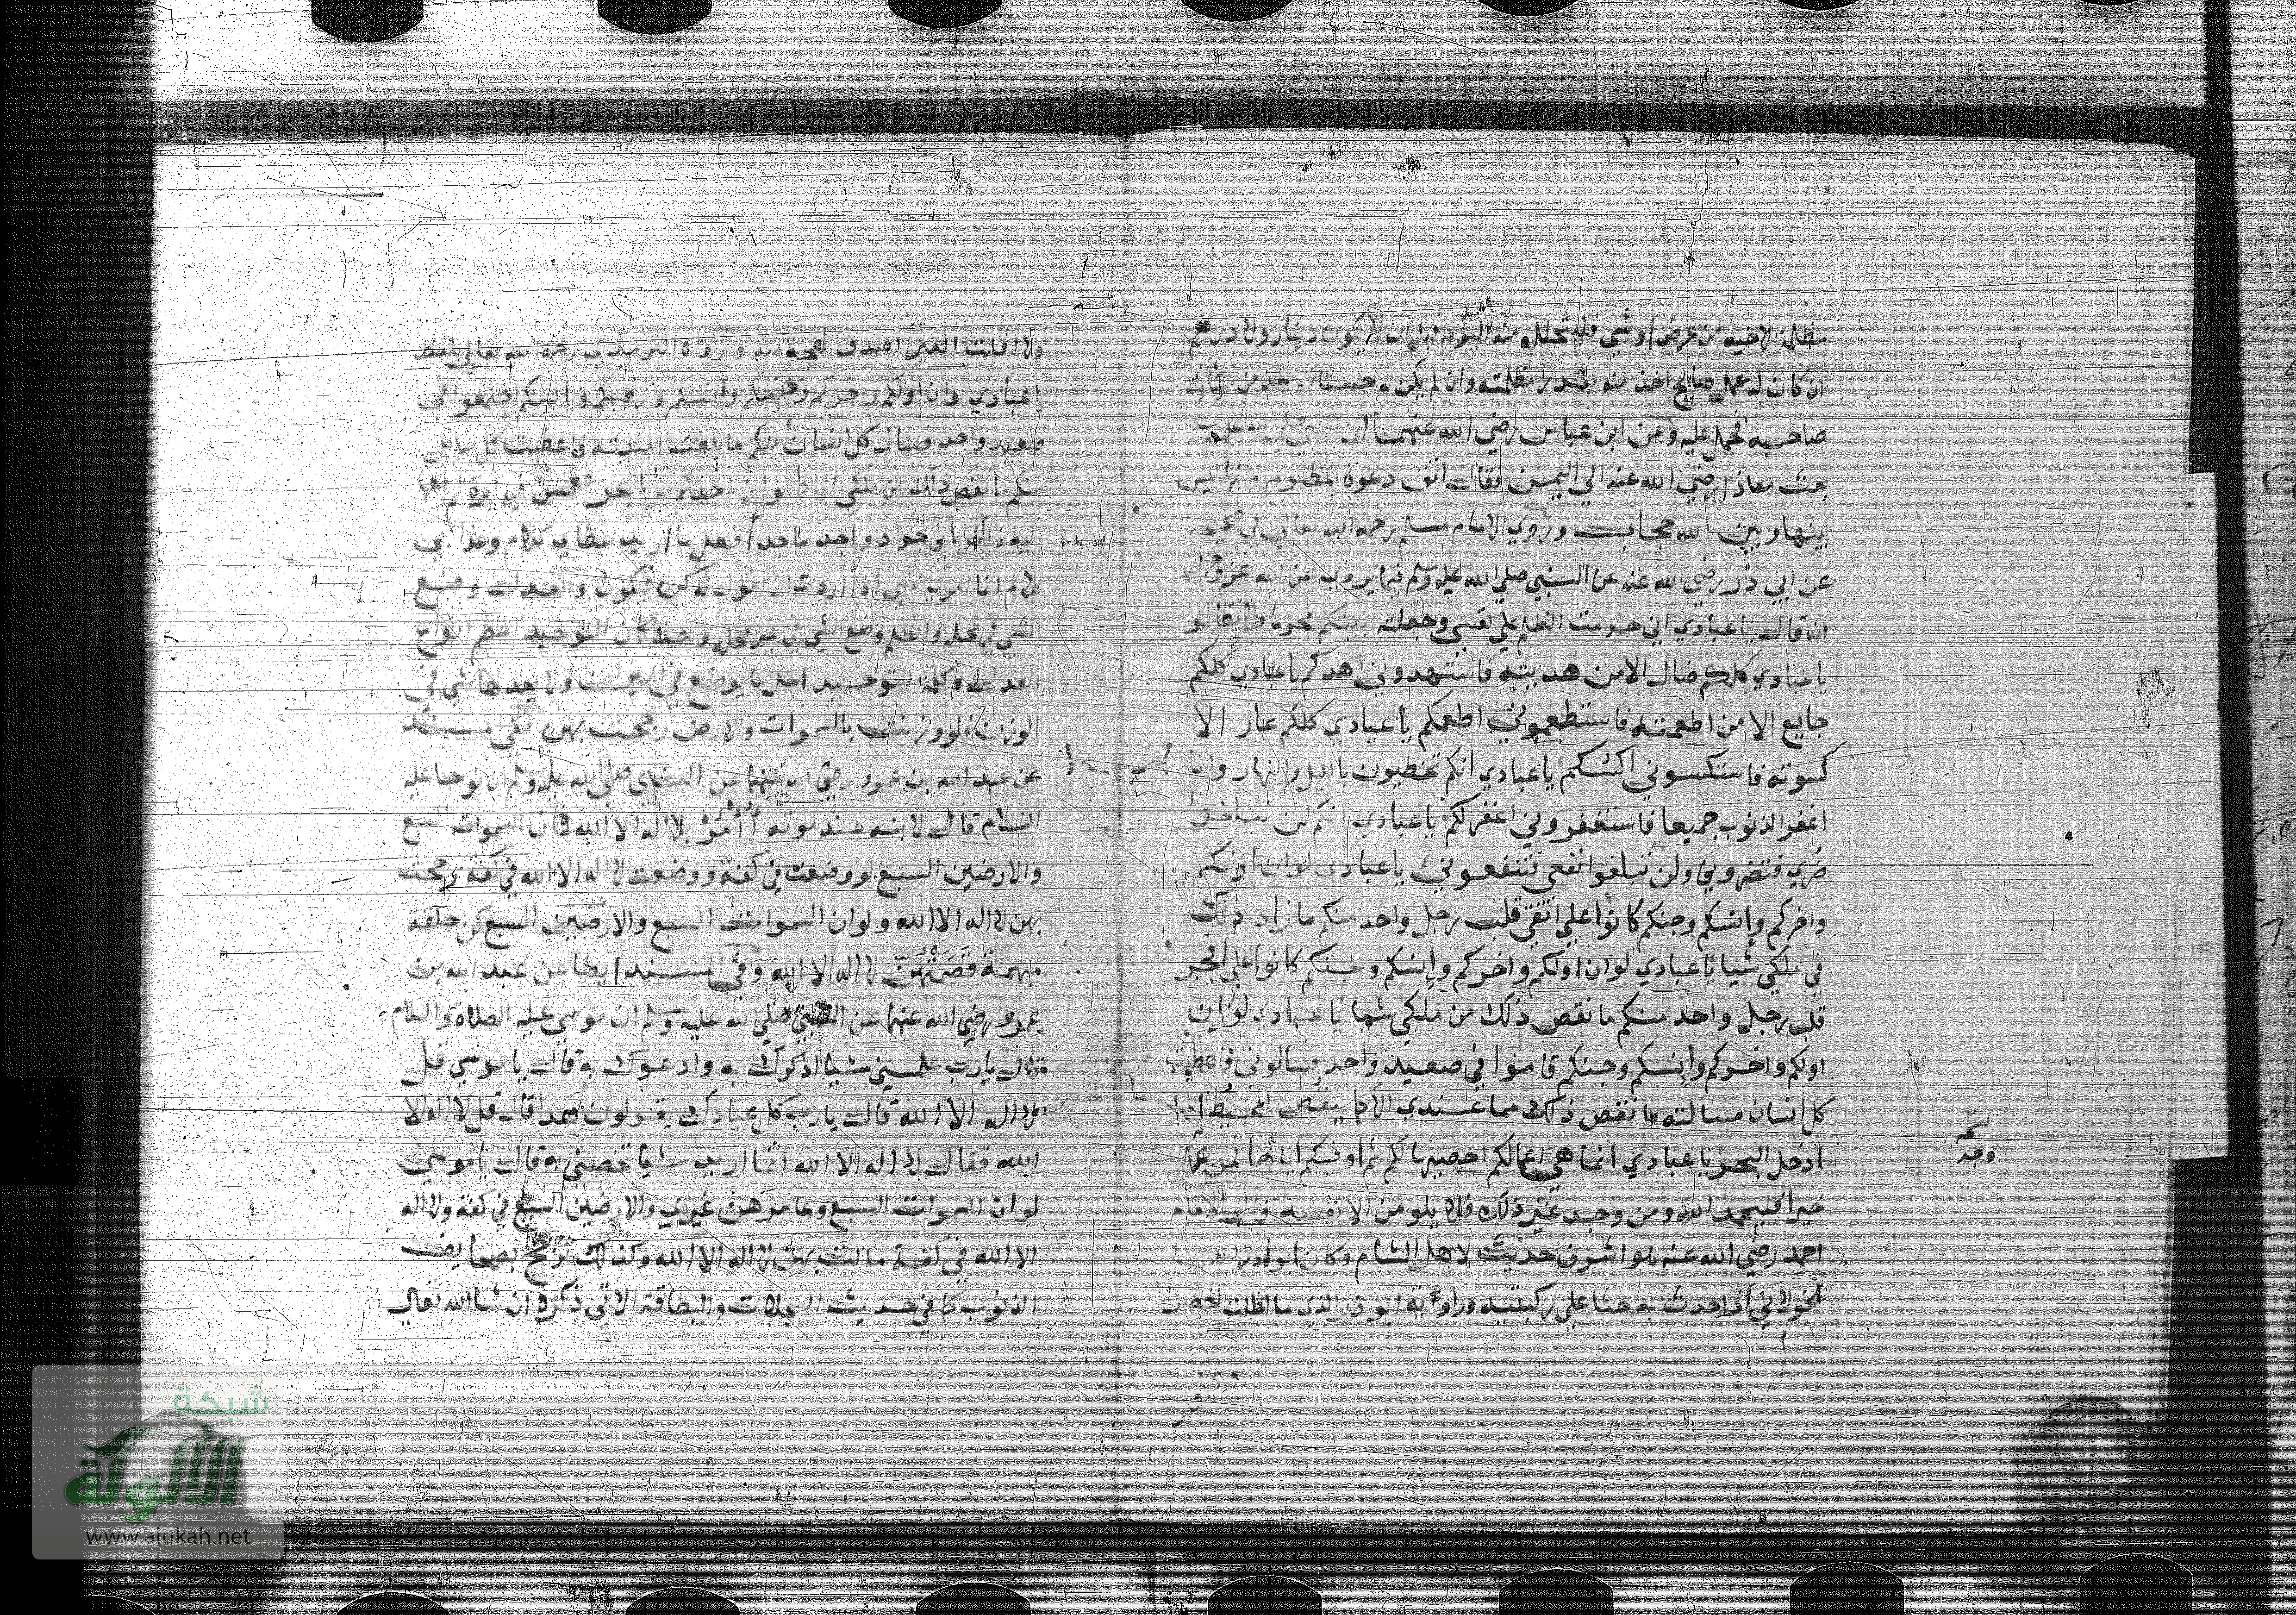 مظلمة لاخيه من عرض او شي فليتحلله منه اليوم قبل ان لا يكون دينار ولا درهم
ان كان له عمل صالح اخذ منه بقدر مظلمته وان لم يكن له حسنات اخذ من سيئات
صاحبه فحمل عليه وعن ابن عباس رضي الله عنهما ان النبي صلى الله عليه وسلم
بعث معاذا رضي الله عنه الي اليمن فقال اتق دعوة المظلوم فانها ليس
بينها وبين الله حجاب وروي الامام مسلم رحمه الله تعالي في صحيحه
عن ابي ذر رضي الله عنه عن النبي صلي الله عليه وسلم فيما يروي عن الله عز وجل
انه قال يا عبادي اني حرمت الظلم علي نفسي وجعلته بينكم محرما فلا تظالموا
يا عبادي كلكم ضال الا من هديته فاستهدوني اهدكم يا عبادي كلكم
جايع الا من اطعمته فاستطعموني اطعمكم يا عبادي كلكم عار الا
كسوته فاستكسوني اكسكم يا عبادي انكم تخطيون بالليل والنهار وانا
اغفر الذنوب جميعا فاستغفروني اغفر لكم يا عبادي انكم لن تبلغوا
ضري فتضروني ولن تبلغوا نفعي فتنفعوني يا عبادي لو ان اولكم
واخركم وانسكم وجنكم كانوا علي اتقي قلب رجل واحد منكم ما زاد ذلك
في ملكي شيا يا عبادي لو ان اولكم واخركم وانسكم وجنكم كانوا علي افجر
قلب رجل واحد منكم ما نقص ذلك من ملكي شيا يا عبادي لو ان
اولكم واخركم وانسكم وجنكم قاموا في صعيد واحد فسالوني فاعطيت
كل انسان مسالته ما نقص ذلك مما عندي الا كما ينقص المخيط اذا
ادخل البحر يا عبادي انما هي اعمالكم احصيها لكم ثم اوفيكم اياها فمن عمل
خيرا فليحمد الله ومن وجد غير ذلك فلا يلومن الا نفسه قال الامام
احمد رضي الله عنه هو اشرف حديث لاهل الشام وكان ابو ادريس
الخولاني اذا حدث به جثا علي ركبتيه وراويه ابو ذر الذي ما اظلت الخضرا
نسخه
وجد
ولا اقلت
ولا اقلت الغبرا اصدق لهجة منه ورواه الترمذي رحمه الله تعالي
يا عبادي لو ان اولكم واخركم وانسكم اجتمعوا في
صعيد واحد فسال كل انسان منكم ما بلغت امنيته فاعطيت كل سايل
منكم ما نقص ذلك من ملكي الا كما لو ان احدكم مر بالبحر فغمس فيه ابرة
ذلك باني جواد واجد ماجد افعل ما اريد عطاي كلام وعذابي
كلام انما امري لشي اذا اردت ان اقول له كن فيكون والعدل وضع
الشي في محله والظلم وضع الشي في غير محله التوحيد
العدل وكلمة التوحيد في الميزان شي في
الوزن فلو وزنت بالسموات والارض رجحت بهن ففي مسند
عن عبد الله بن عمرو رضي الله عنهما عن النبي صلي الله عليه وسلم ان نوحا عليه
السلام قال لابنه عند موته آمرك بلا اله الا الله فان السموات السبع
والارضين السبع لو وضعت في كفة ووضعت لا اله الا الله في كفة رجحت
بهن لا اله الا الله ولو ان السموات السبع والارضين السبع كن حلقة
مبهمة قصمتهن لا اله الا الله وفي المسند ايضا عن عبد الله بن
عمرو رضي الله عنهما عن النبي صلي الله عليه وسلم ان موسي عليه الصلاة والسلام
قال يا رب علمني شيا اذكرك به وادعوك به قال يا موسي قل
لا اله الا الله قال يا رب كل عبادك يقولون هذا قال قل لا اله الا
الله فقال لا اله الا الله انما اريد شيا تخصني به قال يا موسي
لو ان السموات السبع وعامرهن غيري والارضين السبع في كفة ولا اله
الا الله في كفة مالت بهن لا اله الا الله وكذلك ترجح بصحايف
الذنوب كما في حديث السجلات والبطاقة الاتي ذكره ان شا الله تعالي
شبكة
الألوكة
www.alukah.net